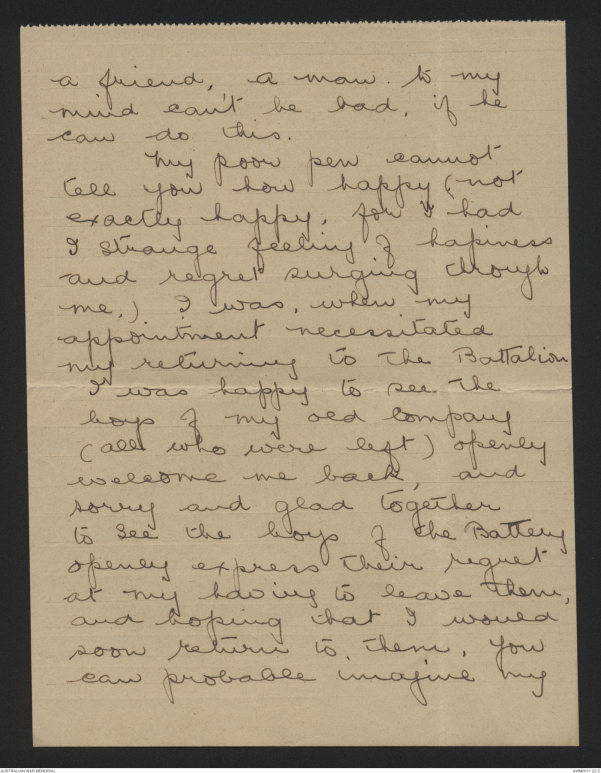 a friend, a man. to my
mind can't be bad, if he
can do this.
My poor pen cannot
tell you how happy (not
exactly happy, for I had
I strange feeling of hapiness
and regret surging through
me.) I was, when my
appointment necessitated
my returning to the Battalion
I was happy to see the
boys of my old company
(all who were left) openly
welcome me back, and
sorry and glad together
to see the boys of the Battery
openly express their regret
at my having to leave them,
and hoping that I would
soon return to them. You
can probable imagine my
AUSTRALIAN WAR MEMORIAL